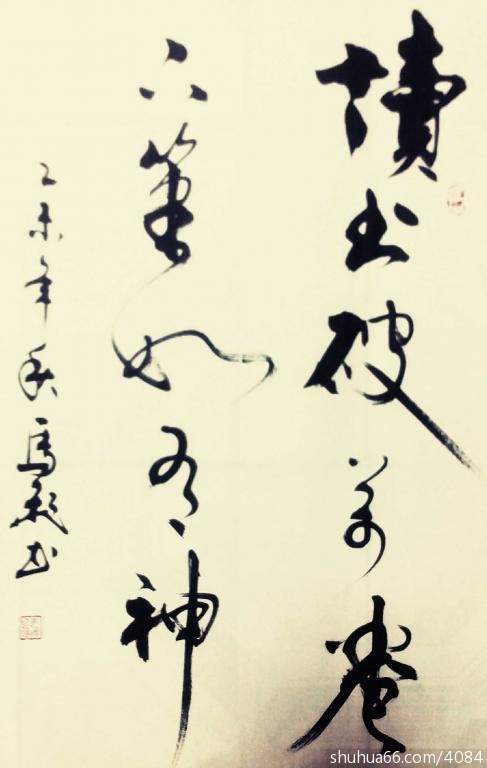 讀书破萬卷
下筆如有神
乙未年秋馬龍书
shuhua66.com/4084